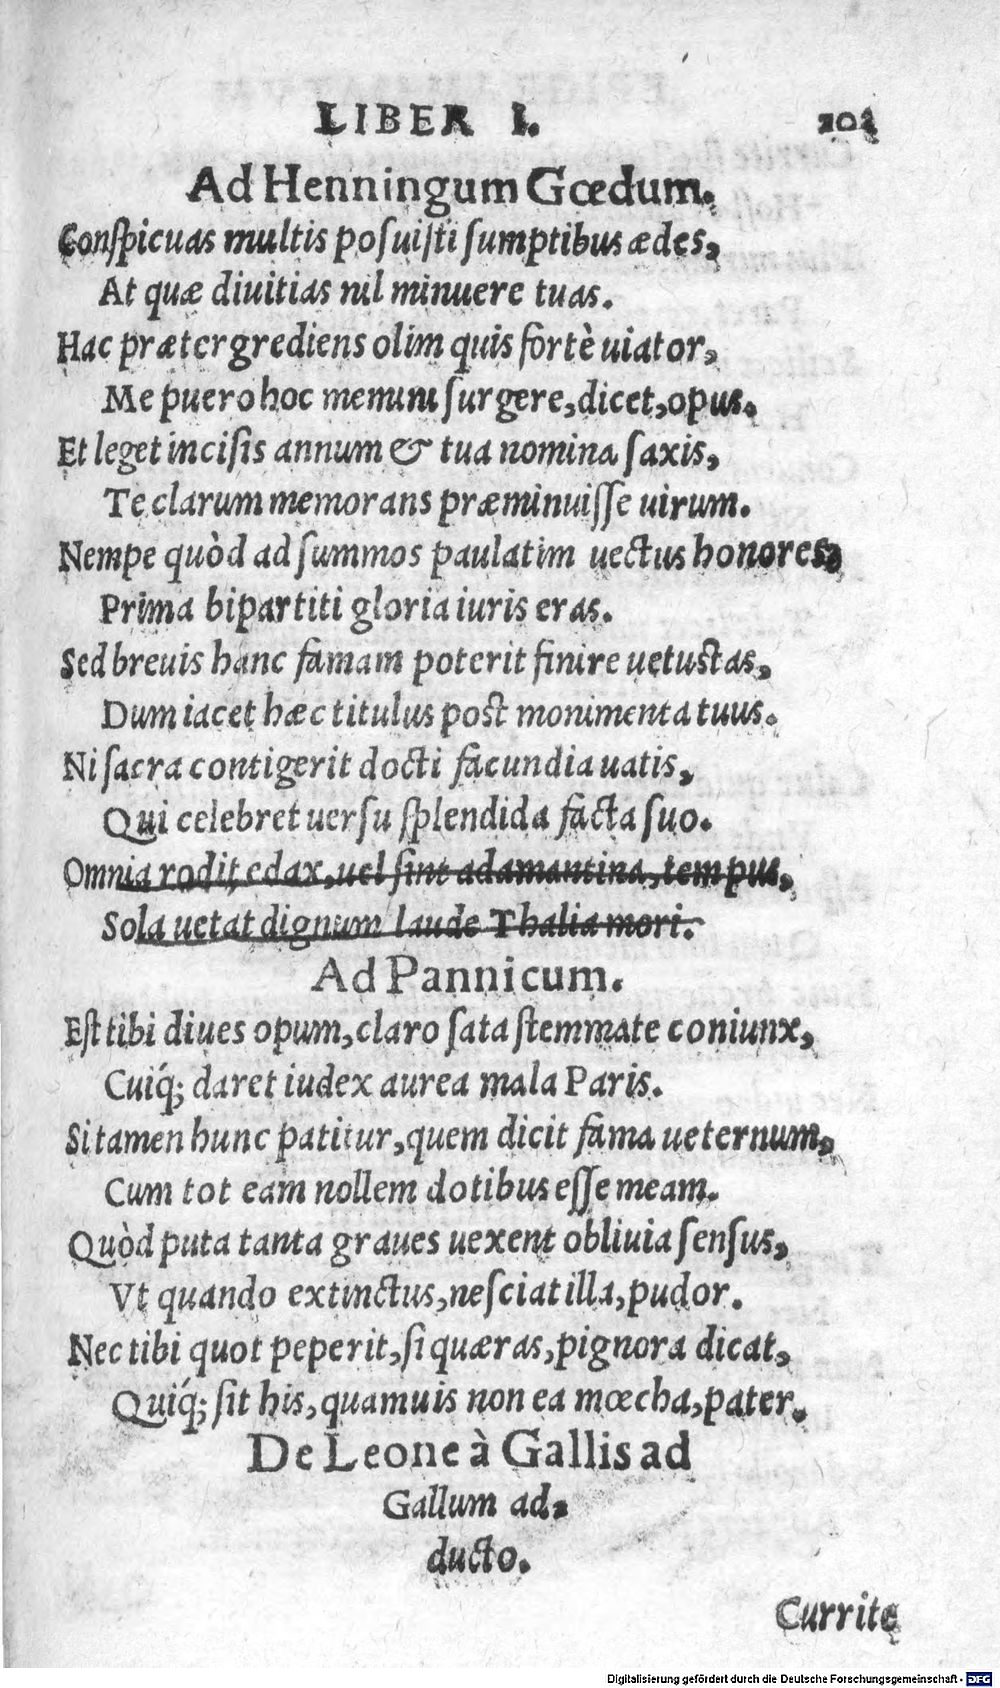 LIBER I. 101
Ad Henningum Gœdum.
Conſpicuas multis poſuiſti ſumptibus ædes,
At quæ diuitias nil minuere tuas.
Hac prætergrediens olim quis fortè uiator,
Me puero hoc memini ſurgere, dicet, opus.
Et leget inciſis annum & tua nomina ſaxis,
Te clarum memorans præminuiſſe uirum.
Nempe quòd ad ſummos paulatim uectus honores,
Prima bipartiti gloria iuris eras.
Sed breuis hanc famam poterit finire uetustas,
Dum iacet hæc titulus post monimenta tuus.
Ni ſacra contigerit docti facundia uatis,
Qui celebret uerſu ſplendida facta ſuo.
Omnia rodit edax, uel ſint adamantina, tempus,
Sola uetat dignum laude Thalia mori.
Ad Pannicum.
Eſt tibi diues opum, claro ſata ſtemmate coniunx,
Cuiq́; daret iudex aurea mala Paris.
Si tamen hunc patitur, quem dicit fama ueternum,
Cum tot eam nollem dotibus eſſe meam.
Quòd puta tanta graues uexent obliuia ſenſus,
Vt quando extinctus, neſciat illa, pudor.
Nec tibi quot peperit, ſi quæras, pignora dicat,
Quiq́; ſit his, quamuis non ea mœcha, pater.
De Leone à Gallis ad
Gallum ad-
ducto.
Currite
Digitalisierung gefördert durch die Deutsche Forschungsgemeinschaft - DFG